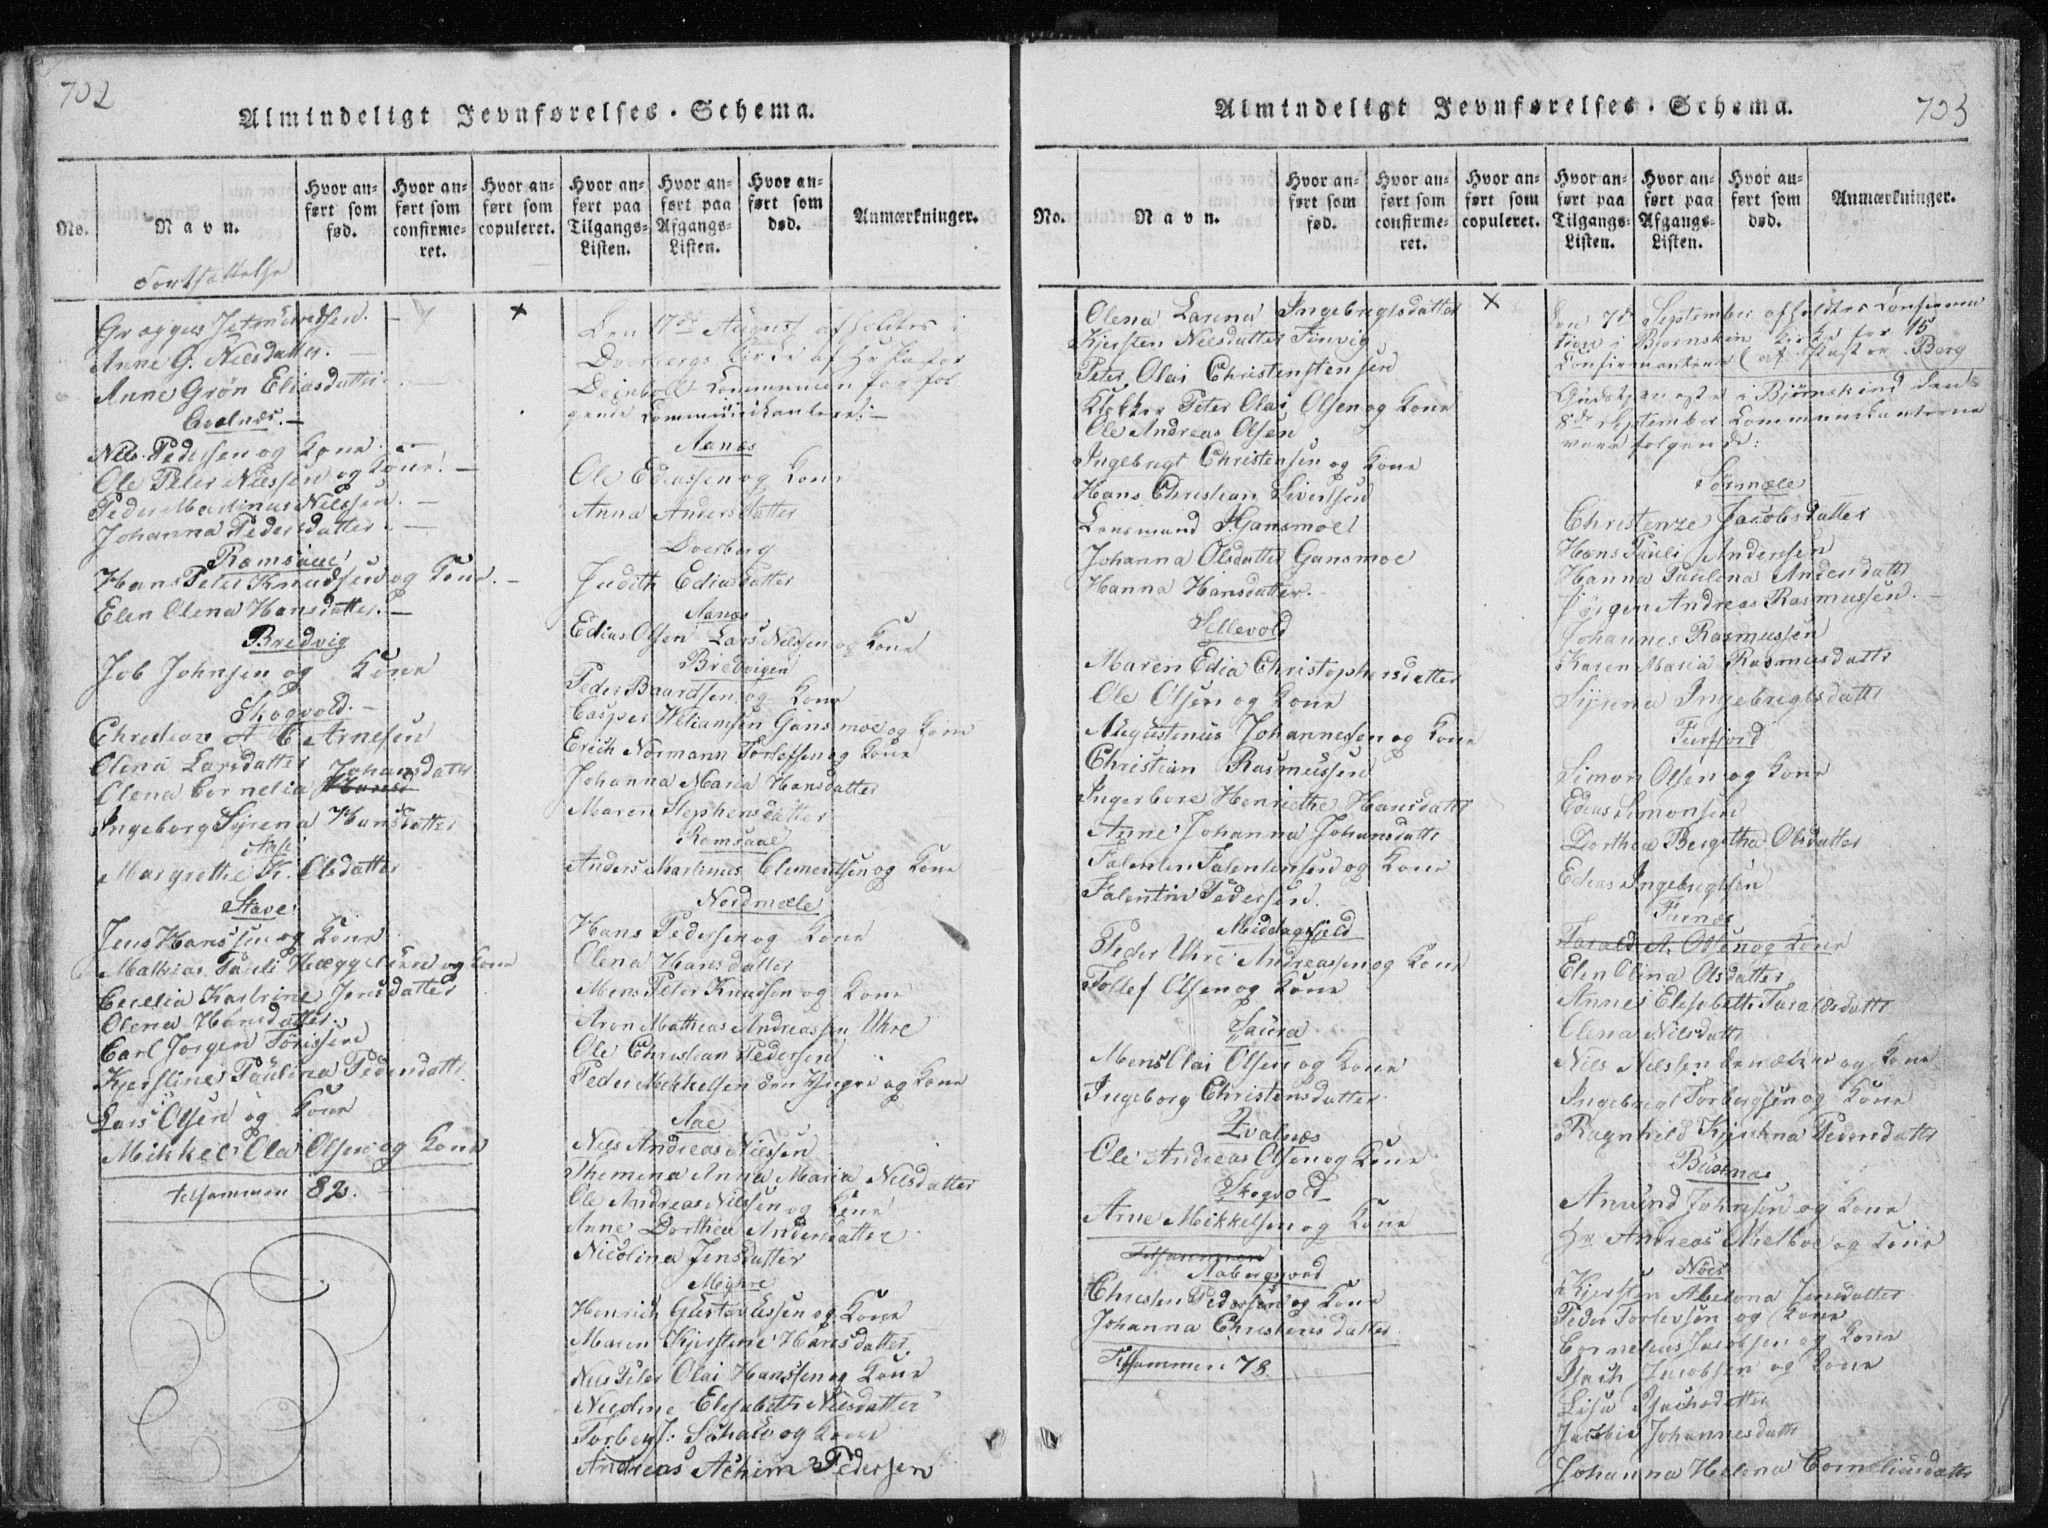 702
Almindeligt Jevnførelses-Schema.
No.
Navn.
Hvor anført som fød.
Hvor anført som confirmeret.
Hvor anført som copuleret.
Hvor anført paa Tilgangs-Listen.
Hvor anført paa Afgangs-Listen.
Hvor anført som død.
Anmærkninger.
Fortsættelse
Anne G. Nilsdatter. —
Anne Grøn Eliasdatter. —
Nils Pedersen og Kone. —
Ole Peter Nilssen og Kone. —
Peder Martinus Nilssen. —
Johanna Pedersdatter. —
Ramsaae
Hans Peter Knudsen og Kone. —
Elen Olena Hansdatter. —
Bredvig
Job Johnsen og Kone
Skogvold. —
Christian A C Arnesen
Olena Larsdatter
Olena Cornelia Johansdatter
Ingeborg Syrena Hansdatter
Margrethe K. Olsdatter
Stave
Jens Hanssen og Kone
Mathias Pauli og Kone
Cecelia Katrine Jensdatter
Olena Hansdatter.
Carl Jørgen
Kjerstine Paulina Pedersdattr
Lars Olsen og Kone
Mikkel Olai Olsen og Kone
tilsammen 82. —
Den 17de August afholdtes i
Dverbergs Kirke af Hr Pastor
Deinboll Communion for føl-
gende Communikantere: —
Aanes
Ole Ediassen og Kone
Anna Andersdatter
Dverberg
Judith Ediasdatter
Aanes
Edias Olsen Lars Nilssen og Kone
Bredvigen
Peder Baardsen og Kone
Casper Wiliamsen Gansmoe og Kone
Erich Normann Torlefsen og Kone
Johanna Maria Hansdatter
Maren Stephensdatter
Ramsaae
Anders Martinus Clementsen og Kone
Nordmæle
Hans Pedersen og Kone
Olena Hansdatter
Mens Peter Knudsen og Kone
Aron Mathias Andreassen Uhre
Ole Christian Pedersen
Peder Mikkelsen den Yngre og Kone
Aae
Nils Andreas Nilssen
Anna Maria Nilsdatter
Ole Andreas Nilssen og Kone
Anne Dorthea Andersdatter
Nicolina Jensdatter
Myhre
Henrich Gustavussen og Kone
Maren Kjerstine Hansdatter.
Nils Peter Olai Hanssen og Kone
Elisabeth Nilsdatter
Torber J: Schalv og Kone
Andreas Achim Pedersen
703
Almindeligt Jevnførelses-Schema.
No.
Navn.
Hvor anført som fød.
Hvor anført som confirmeret.
Hvor anført som copuleret.
Hvor anført paa Tilgangs-Listen.
Hvor anført paa Afgangs-Listen.
Hvor anført som død.
Anmærkninger.
Olena Larena Ingebrigtsdatter
Kjersten Nilsdatter Finvig
Peter Olai Christenstensen
Klokker Peter Olai Olsen og Kone
Ole Andreas Olsen
Ingebrigt Christensen og Kone
Hans Christian Sivertsen
Lensmand Gansmoe
Johanna Olsdatter Gansmoe
Hanna Hansdatter.
Sellevold
Maren Edia Christophersdatter
Ole Olsen og Kone
Augustinus Johannessen og Kone
Christian Rasmussen
Ingerbore Henriethe Hansdattr
Anne Johanna Johansdattr
Falenten Falentensen og Kone
Falentin Pedersen.
Middagsfjeld
Peder Uhre Andreassen og Kone
Tollef Olsen og Kone
Saura
Mens Olai Olsen og Kone
Ingeborg Christensdatter
Qvalnæs
Ole Andreas Olsen og Kone
Skogvold
Arne Mikkelsen og Kone
Tilsammen
Aabergsjord
Christen Pedersen og Kone
Johanna Christensdatter
Tilsammen 78.
Den 7de September afholdtes Confirma
tion i Bjørnskin Kirke for 15
Confirmantere (af Pastor Berg
Gudstjeneste i Bjørnskind den
8de September Communikanterne
vare følgende:
Sørmæle
Christenze Jacobsdatter
Hans Pauli Andersen
Hanna Paulena Andersdattr
Jørgen Andreas Rasmussen. —
Johannes Rasmussen
Karen Maria Rasmusdattr
Syrena Ingebrigtsdattr
Furfjord
Simon Olsen og Kone
Edias Simonsen
Dorthea Bergitha Olsdatter
Edias Ingebrigtsen
Tarald A. Olsen og Kone
Elen Olina Olsdatter
Anne Elisabeth Taraldsdattr
Olena Nilsdattr
Nils Nilssen den ældre og Kone
Ingebrigt Torbergsen og Kone
Ragnhild Kjerstina Pedersdattr
Buknæs
Anund Johnsen og Kone
Hr Andreas Mielboe og Kone
Kjersten Abelona Jensdatter
Peder Torlevsen og Kone
Cornelius Jacobsen og Kone
Isach Jacobsen og Kone
Lisa Isachsdatter
Johannesdattr
Johanna Helena Corneliusdattr